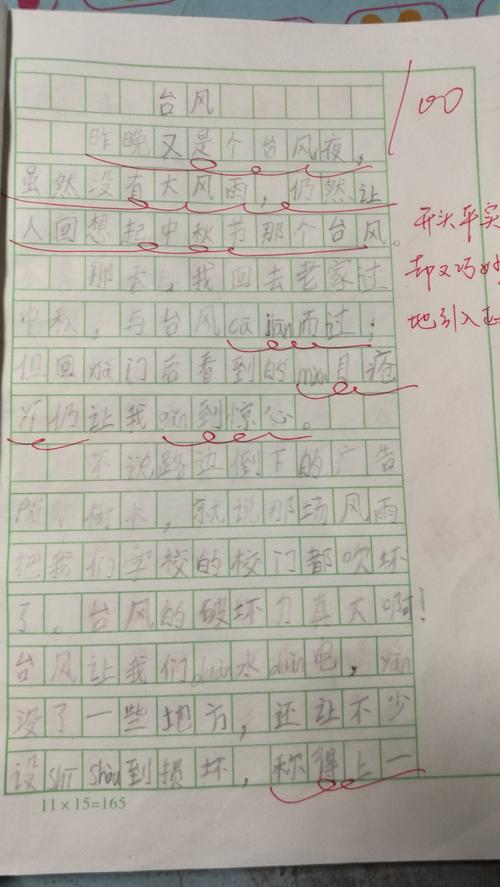 台风
100
昨晚又是个台风夜，
虽然没有大风雨，仍然让
人回想起中秋节那个台风。
开头平实
那天，我回去老家过
却又巧妙
中秋，与台风cā jiān而过；
地引入正
但回xià门后看到的mǎn目疮
yí仍让我gǎn到惊心。
不说路边倒下的广告
牌、树木，就说那场风雨
把我们学校的校门都吹坏
了。台风的破坏力真大啊！
台风让我们duàn水duàn电，yān
没了一些地方，还让不少
设shī shòu到损坏，称得上一
11×15=165